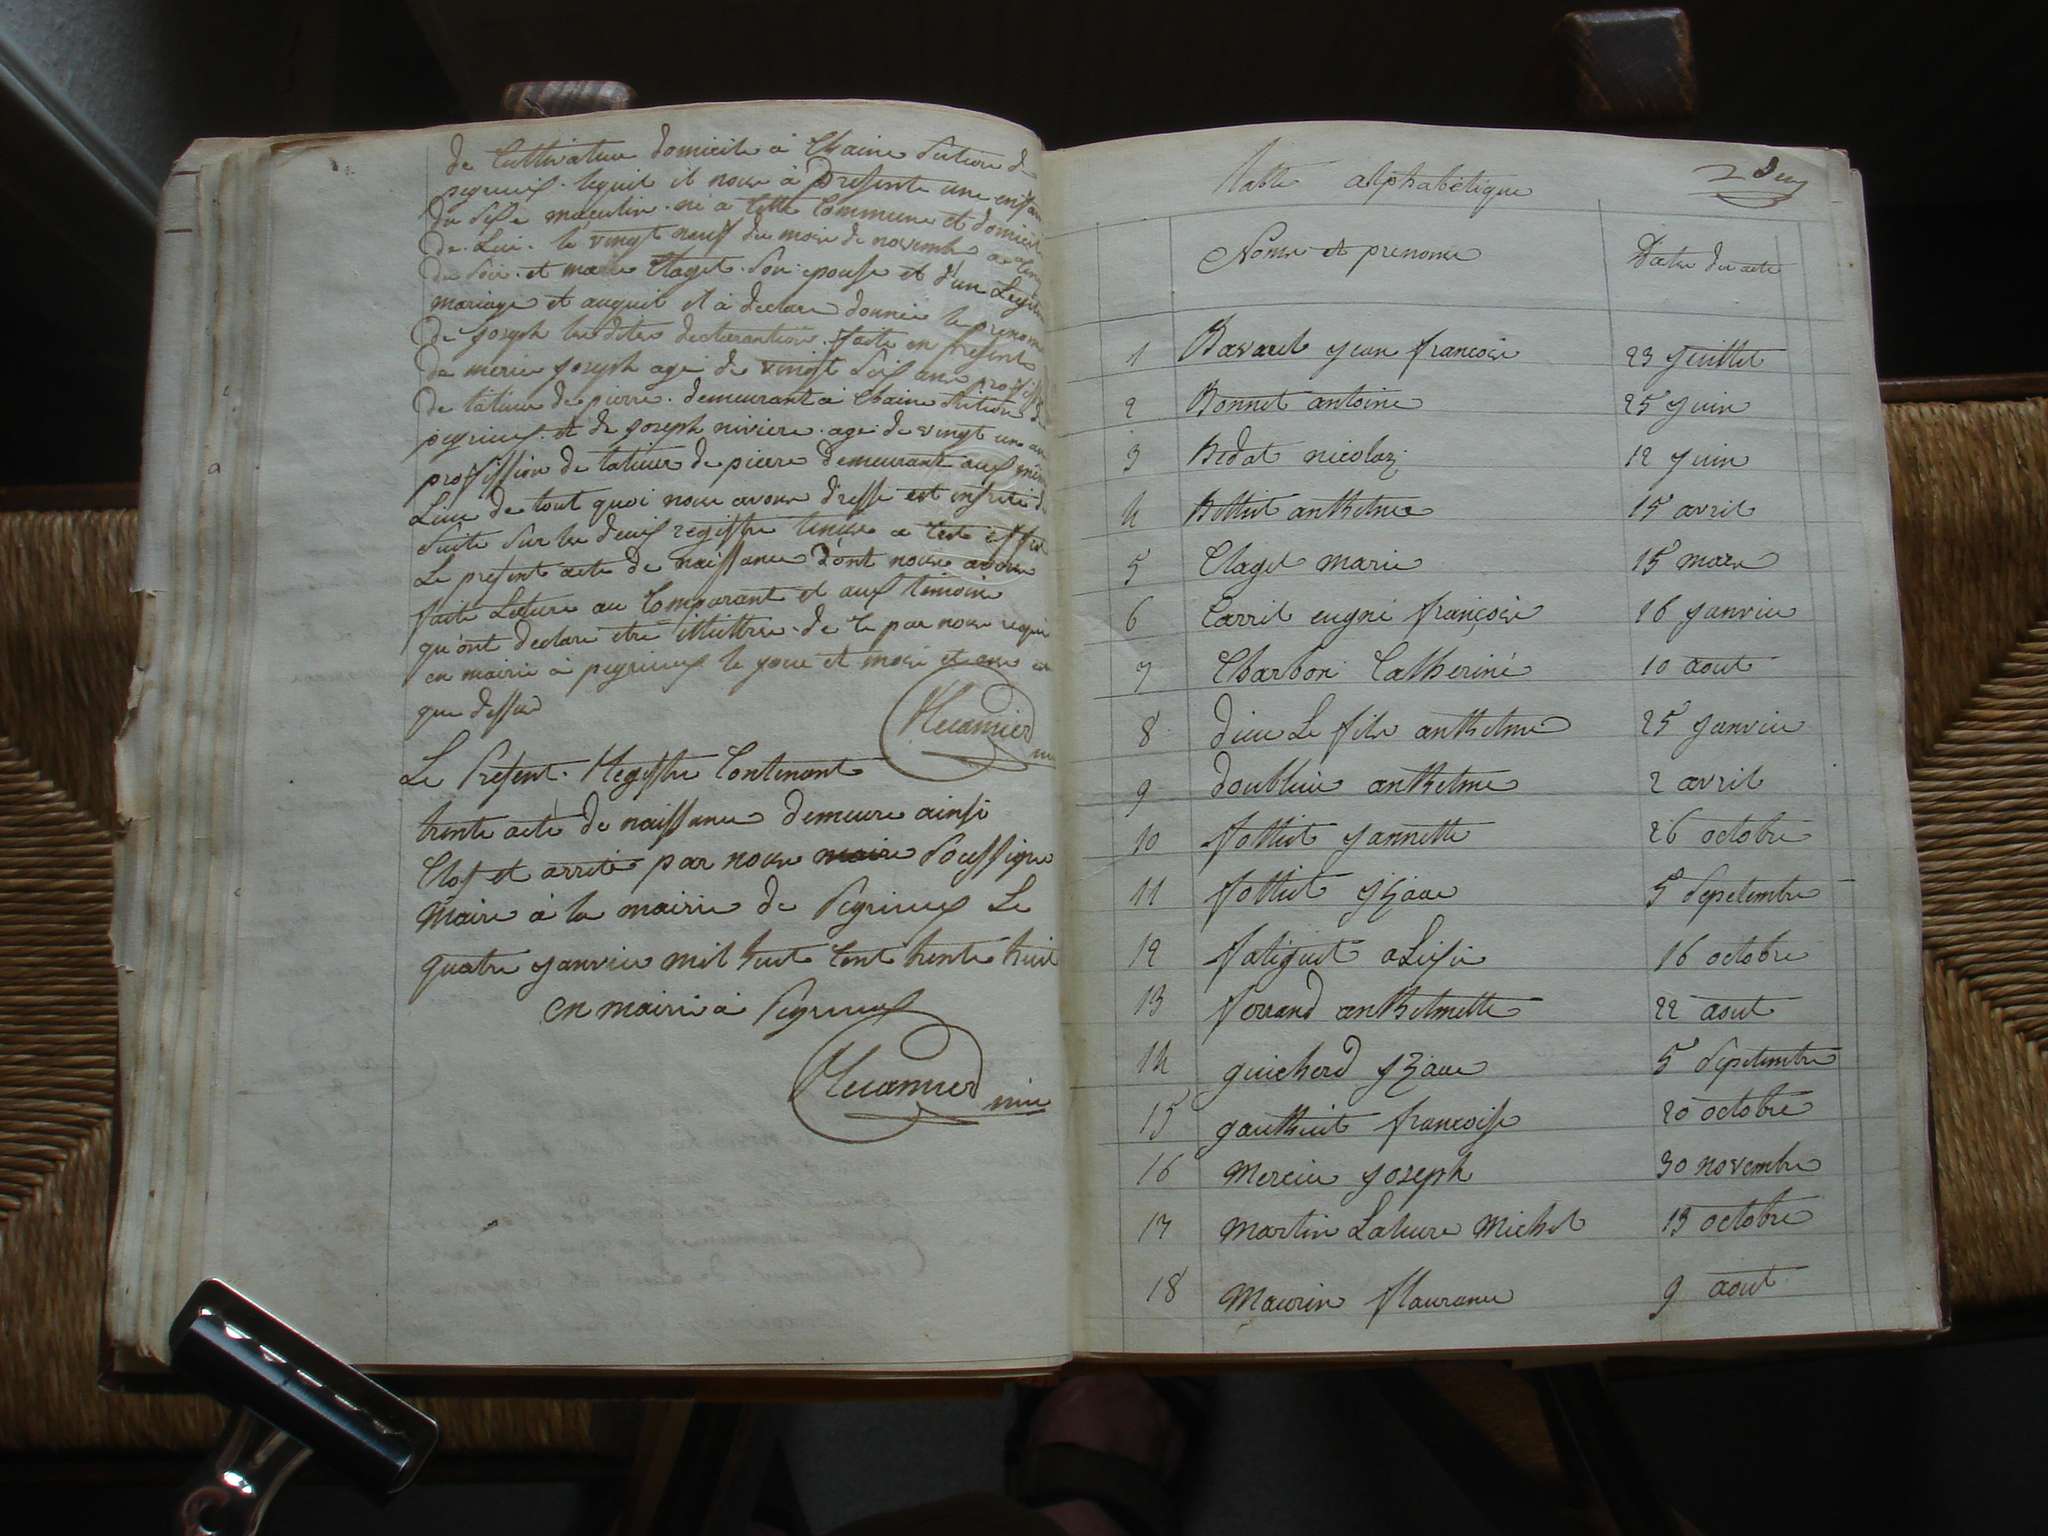 de Cultivateur domicile à Chaine Section de
peyrieux. lequel il nous à Présenté une enfan
du sexe masculin. né a cette Commune et domicil
de. Lui. le vingt neuf du mois de novembre a
du soir. et marie Claget. son epouse et d'un Legit
mariage et auquel il à declare donnée le prenom
de joseph les dites declarantion. faite en present
de mercie joseph agé de vingt six ans proffess
de tatieur de pierre. demeurant à Chaine Section de
peyrieux. et de joseph riviere. age de vingt un an
proffission de tatieur de pierre demeurant aux mêm
Lieu de tout quoi nous avons dressé est inscrit de
suite sur les deux registre tenus a cest effet
Le present acte de naissance dont nous avons
faite Lecture au Comparant et aux témoins
qu'ont declare etre illettrés. de ce par nous requi
en mairie à peyrieux le jour et mois et an
que dessus
Recamier
Le Présent. Registre Contenant
trente acte de naissance demeure ainsi
Clos et arrité par nous maire soussigne
Maire à la mairie de Peyrieux Le
quatre janvier mil huit Cent trente huit
en mairie à Peyrieux
Recamier
Table alphabétique
2 Deux
Noms et prenoms
Date du acte
1 Bavaret jean françois 23 juillet
2 Bonnet antoine 25 juin
3 Bedat nicolas 12 juin
4 Bettiet anthelme 15 avril
5 Claget marie 15 mars
6 Carril eugné françois 16 janvier
7 Charbon Catherine 10 aout
8 dieu Le fils anthelme 25 janvier
9 doublier anthelme 2 avril
10 Jottiet jannette 26 octobre
11 Jottiet jzaac 5 Sepetembre
12 fatiguet 16 octobre
13 ferrand anthelmette 22 aout
14 guicherd jzaac 5 Sepetembre
15 gauthiet francoise 20 octobre
16 Mercier joseph 30 novembre
17 Martin Michel 13 octobre
18 Maurin 9 aout